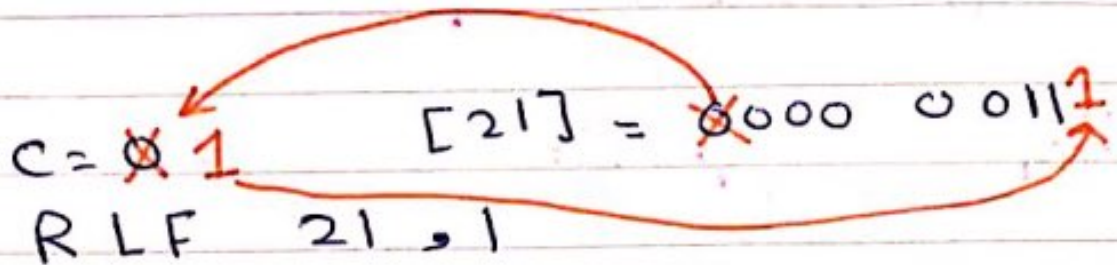 C = 0 1 [21] = 0000 0011 1
RLF 21, 1